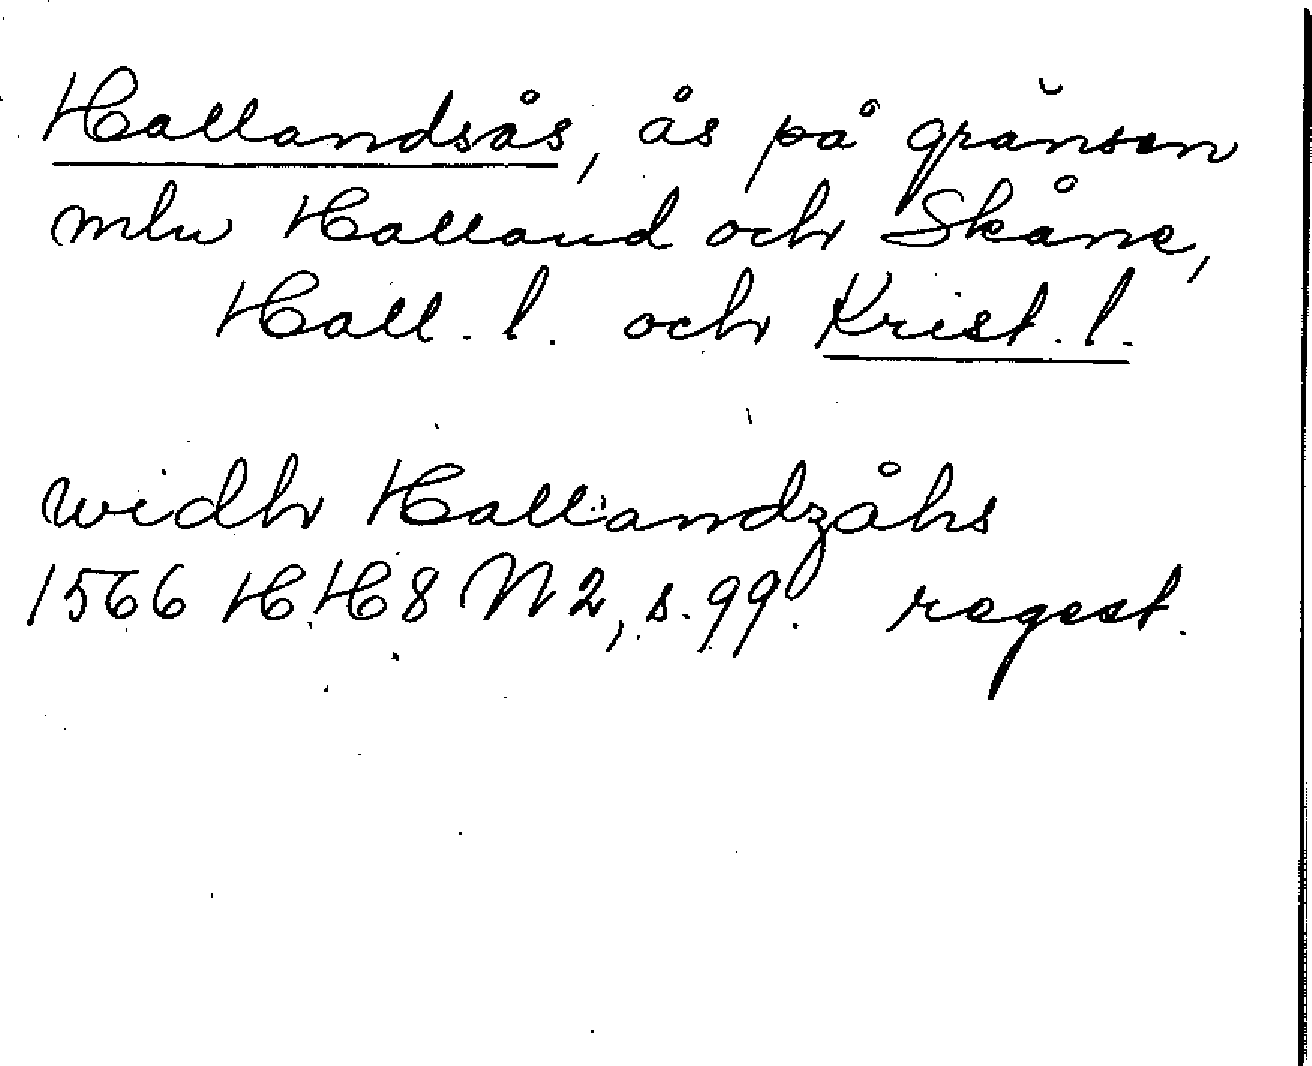 Hallandsås, ås på gränsen
mlw Halland och Skåne,
Hall. l. och Krist. l.
widh Hallandzåhs
1566 HH 8 N 2, s. 99. regest.